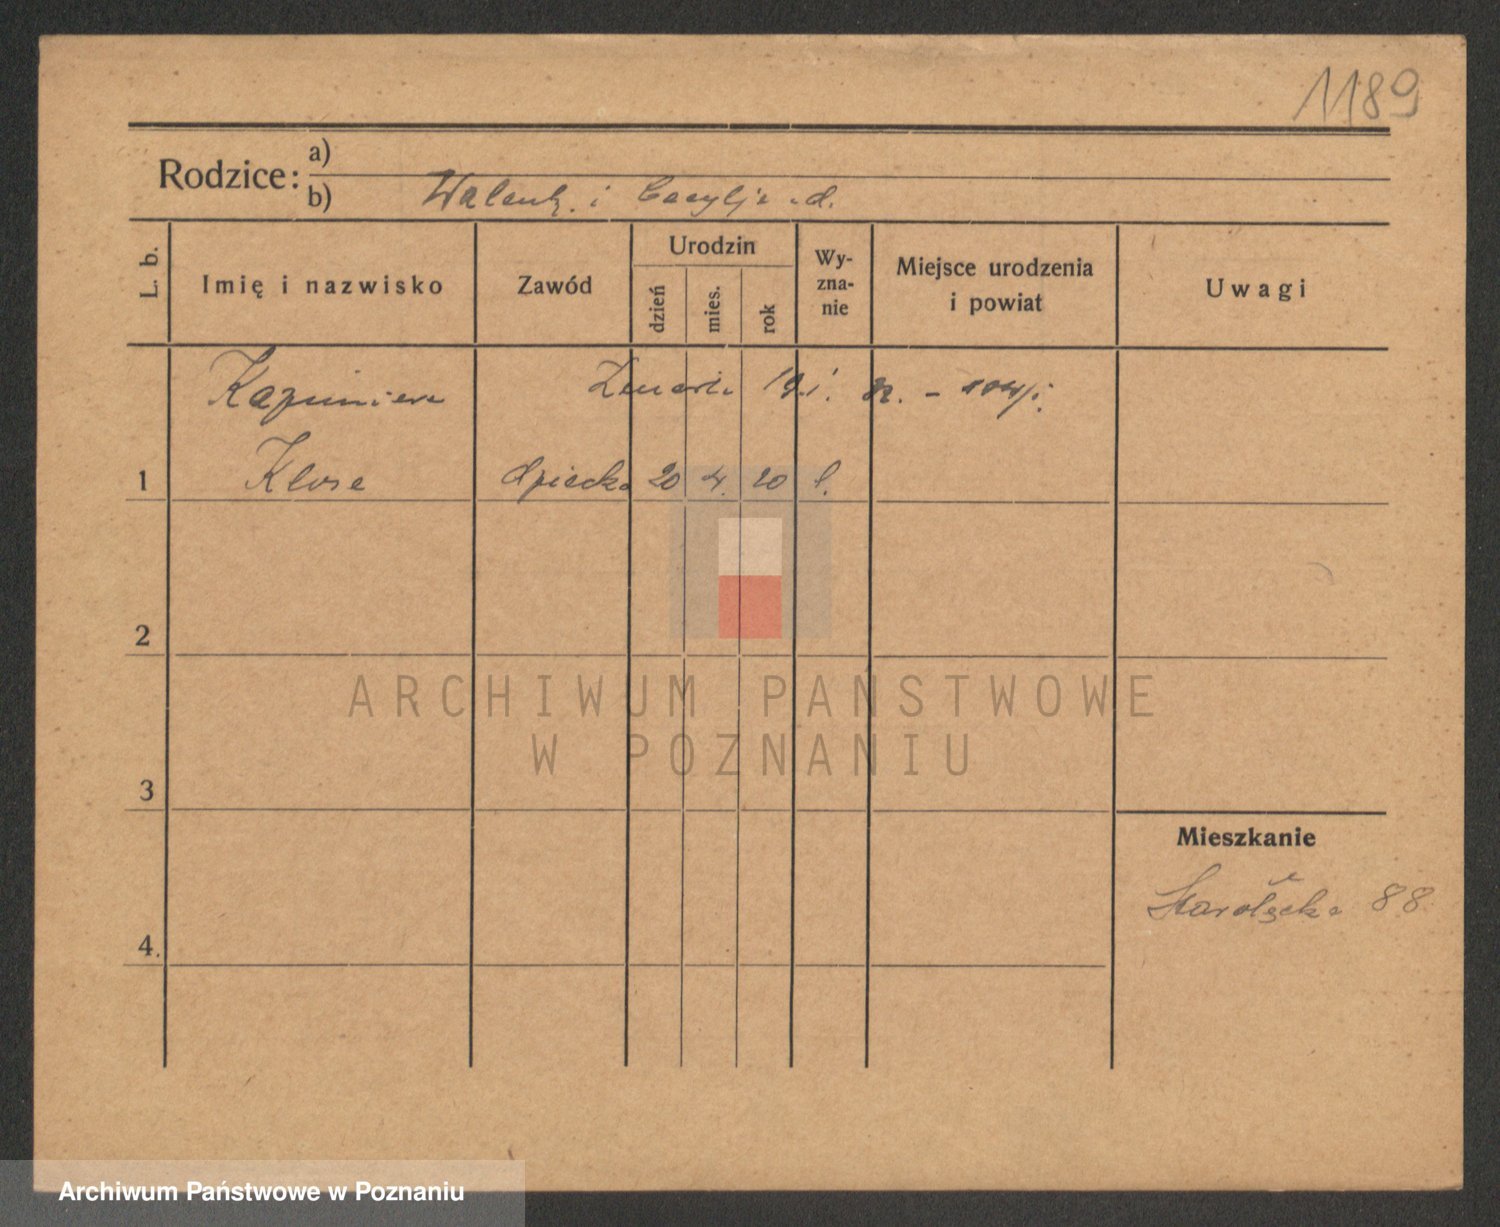 1189
Rodzice: a)
b) Walent. i Cecylja
L. b. Imię i nazwisko Zawód Urodzin dzień mies. rok Wyznanie Miejsce urodzenia i powiat Uwagi
Kazimiera
1 Klose dziecko 20 4. 20
2
3
4.
Mieszkanie
Starołęcka 88
ARCHIWUM PAŃSTWOWE
W POZNANIU
Archiwum Państwowe w Poznaniu